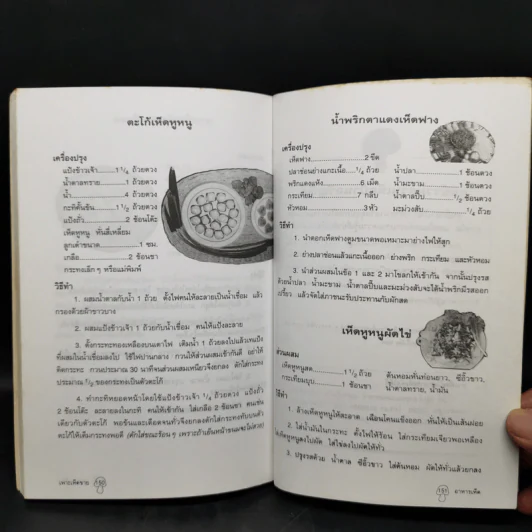 ตะโก้เห็ดหูหนู
เครื่องปรุง
แป้งข้าวเจ้า 1 1/4 ถ้วยตวง
น้ำตาลทราย 1 ถ้วยตวง
น้ำ 4 ถ้วยตวง
กะทิคั้นข้น 1 1/2 ถ้วยตวง
แป้งถั่ว 2 ช้อนโต๊ะ
เห็ดหูหนู หั่นสี่เหลี่ยม
ลูกเต๋าขนาด 1 ซม.
เกลือ 2 ช้อนชา
กระทงเล็กๆ หรือแม่พิมพ์
วิธีทำ
1. ผสมน้ำตาลกับน้ำ 1 ถ้วย ตั้งไฟคนให้ละลายเป็นน้ำเชื่อม แล้ว
กรองด้วยผ้าขาวบาง
2. ผสมแป้งข้าวเจ้า 1 ถ้วยกับน้ำเชื่อม คนให้แป้งละลาย
3. ตั้งกระทะทองเหลืองบนเตาไฟ เติมน้ำ 1 ถ้วยตวงลงไปแล้วเทแป้ง
ที่ผสมในน้ำเชื่อมลงไป ใช้ไฟปานกลาง กวนให้ส่วนผสมเข้ากันดี อย่าให้
ติดกระทะ กวนประมาณ 30 นาทีจนส่วนผสมเหนียวจึงยกลง ตักใส่กระทง
ประมาณ 1/2 ของกระทงเป็นตัวตะโก้
4. ทำกะทิหยอดหน้าโดยใช้แป้งข้าวเจ้า 1/4 ถ้วยตวง แป้งถั่ว
2 ช้อนโต๊ะ ละลายลงในกะทิ คนให้เข้ากัน ใส่เกลือ 2 ช้อนชา คนเช่น
เดียวกับตัวตะโก้ พอข้นและเดือดจนทั่วจึงยกลงตักใส่กระทงทับบนตัว
ตะโก้ให้เต็มกระทงพอดี (ตักใส่ขณะร้อนๆ เพราะถ้าเย็นหน้าขนมจะไม่สวย)
เพาะเห็ดขาย 190
น้ำพริกตาแดงเห็ดฟาง
เครื่องปรุง
เห็ดฟาง 2 ขีด
ปลาช่อนย่างแกะเนื้อ 1/4 ถ้วย น้ำปลา 1 ช้อนตวง
พริกแดงแห้ง 6 เม็ด น้ำมะขาม 1 ช้อนตวง
กระเทียม 7 กลีบ น้ำตาลปี๊บ 1/2 ช้อนตวง
หัวหอม 3 หัว มะม่วงสับ 1/4 ถ้วย
วิธีทำ
1. นำดอกเห็ดฟางตูมขนาดพอเหมาะมาย่างไฟให้สุก
2. ย่างปลาช่อนแล้วแกะเนื้อออก ย่างพริก กระเทียม และหัวหอม
3. นำส่วนผสมในข้อ 1 และ 2 มาโขลกให้เข้ากัน จากนั้นปรุงรส
ด้วยน้ำปลา น้ำมะขาม น้ำตาลปี๊บและมะม่วงสับจะได้น้ำพริกมีรสออก
เปรี้ยว แล้วจัดใส่ภาชนะรับประทานกับผักสด
เห็ดหูหนูผัดไข่
ส่วนผสม
เห็ดหูหนูสด 1 1/2 ถ้วย ต้นหอมหั่นท่อนยาว, ซีอิ๊วขาว,
กระเทียมบุบ 1 ช้อนชา น้ำตาลทราย, น้ำมัน
วิธีทำ
1. ล้างเห็ดหูหนูให้สะอาด เฉือนโคนแข็งออก หั่นให้เป็นเส้นฝอย
2. ใส่น้ำมันในกระทะ ตั้งไฟให้ร้อน ใส่กระเทียมเจียวพอเหลือง
ผัด ใส่ไข่ลงไปผัดให้ทั่ว
3. ปรุงรสด้วย น้ำตาล ซีอิ๊วขาว ใส่ต้นหอม ผัดให้ทั่วแล้วยกลง
191 อาหารเห็ด